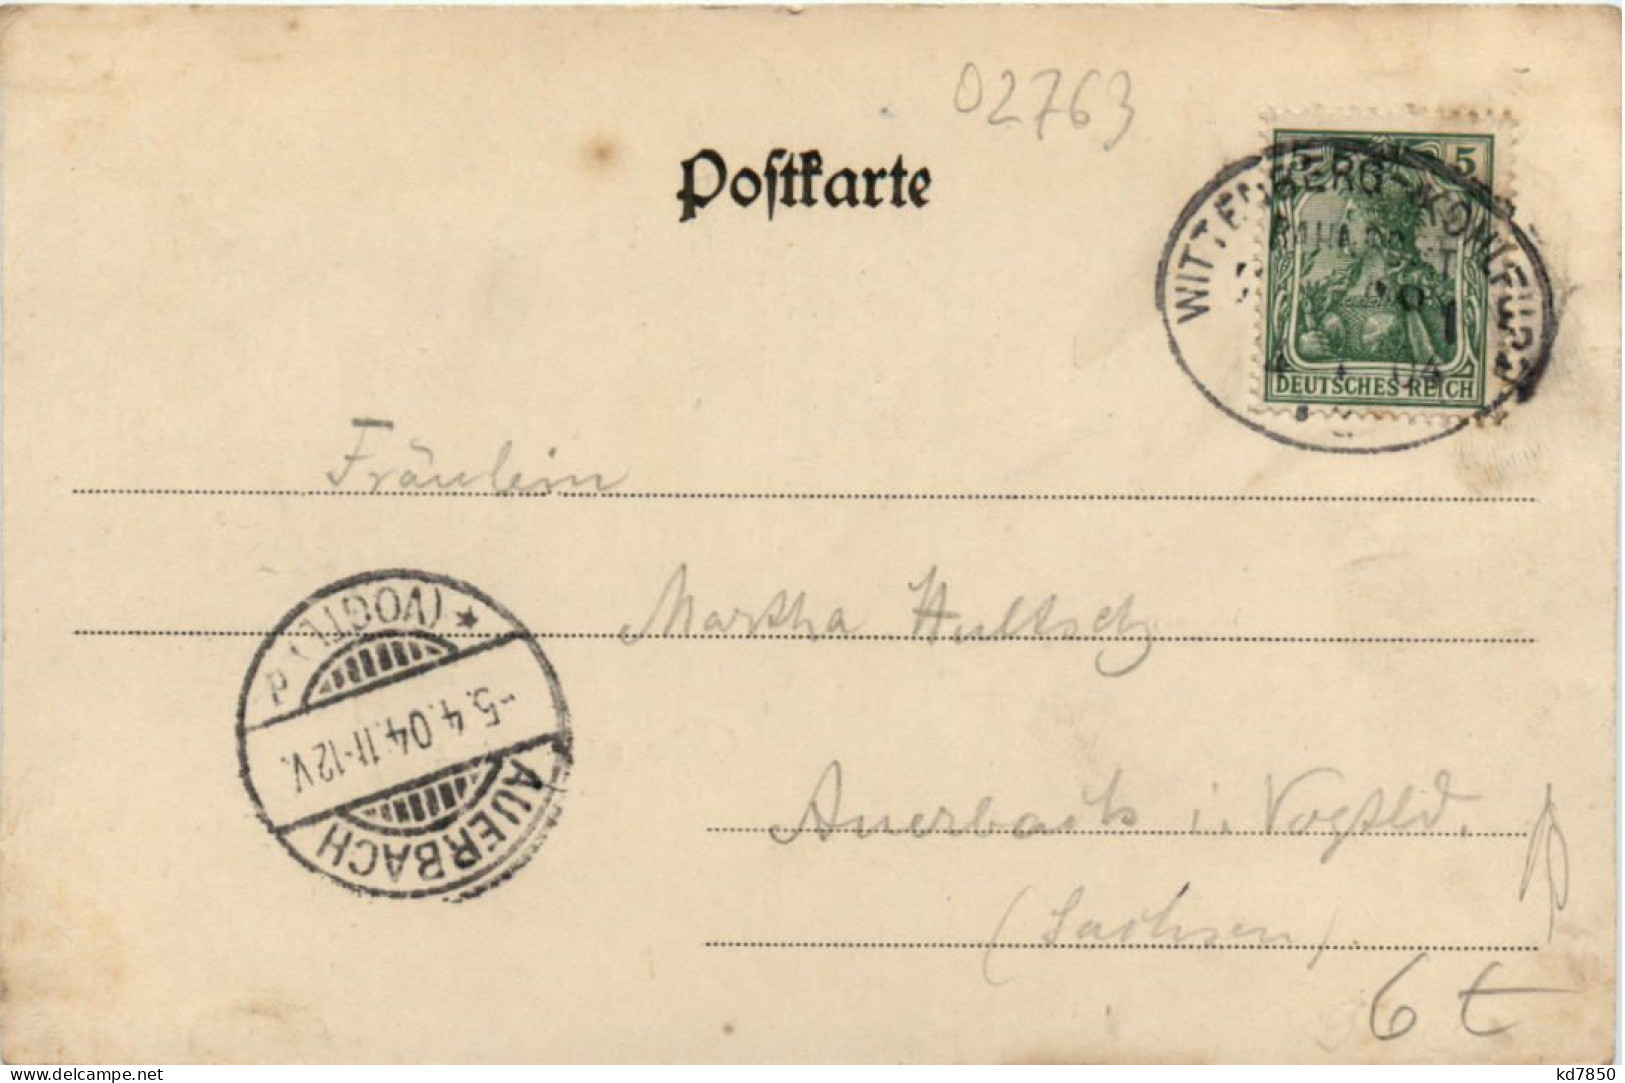 02763
Postkarte
5 5
WITTENBERG-KOHLFURT
BAHNPOST
4 4 04
DEUTSCHES REICH
Fräulein
Martha Hultsch
AUERBACH
-5.4.04.11-12V.
(VOGTL)
Auerbach i. Vogtld.
(Sachsen).
6 t
www.delcampe.net
kd7850